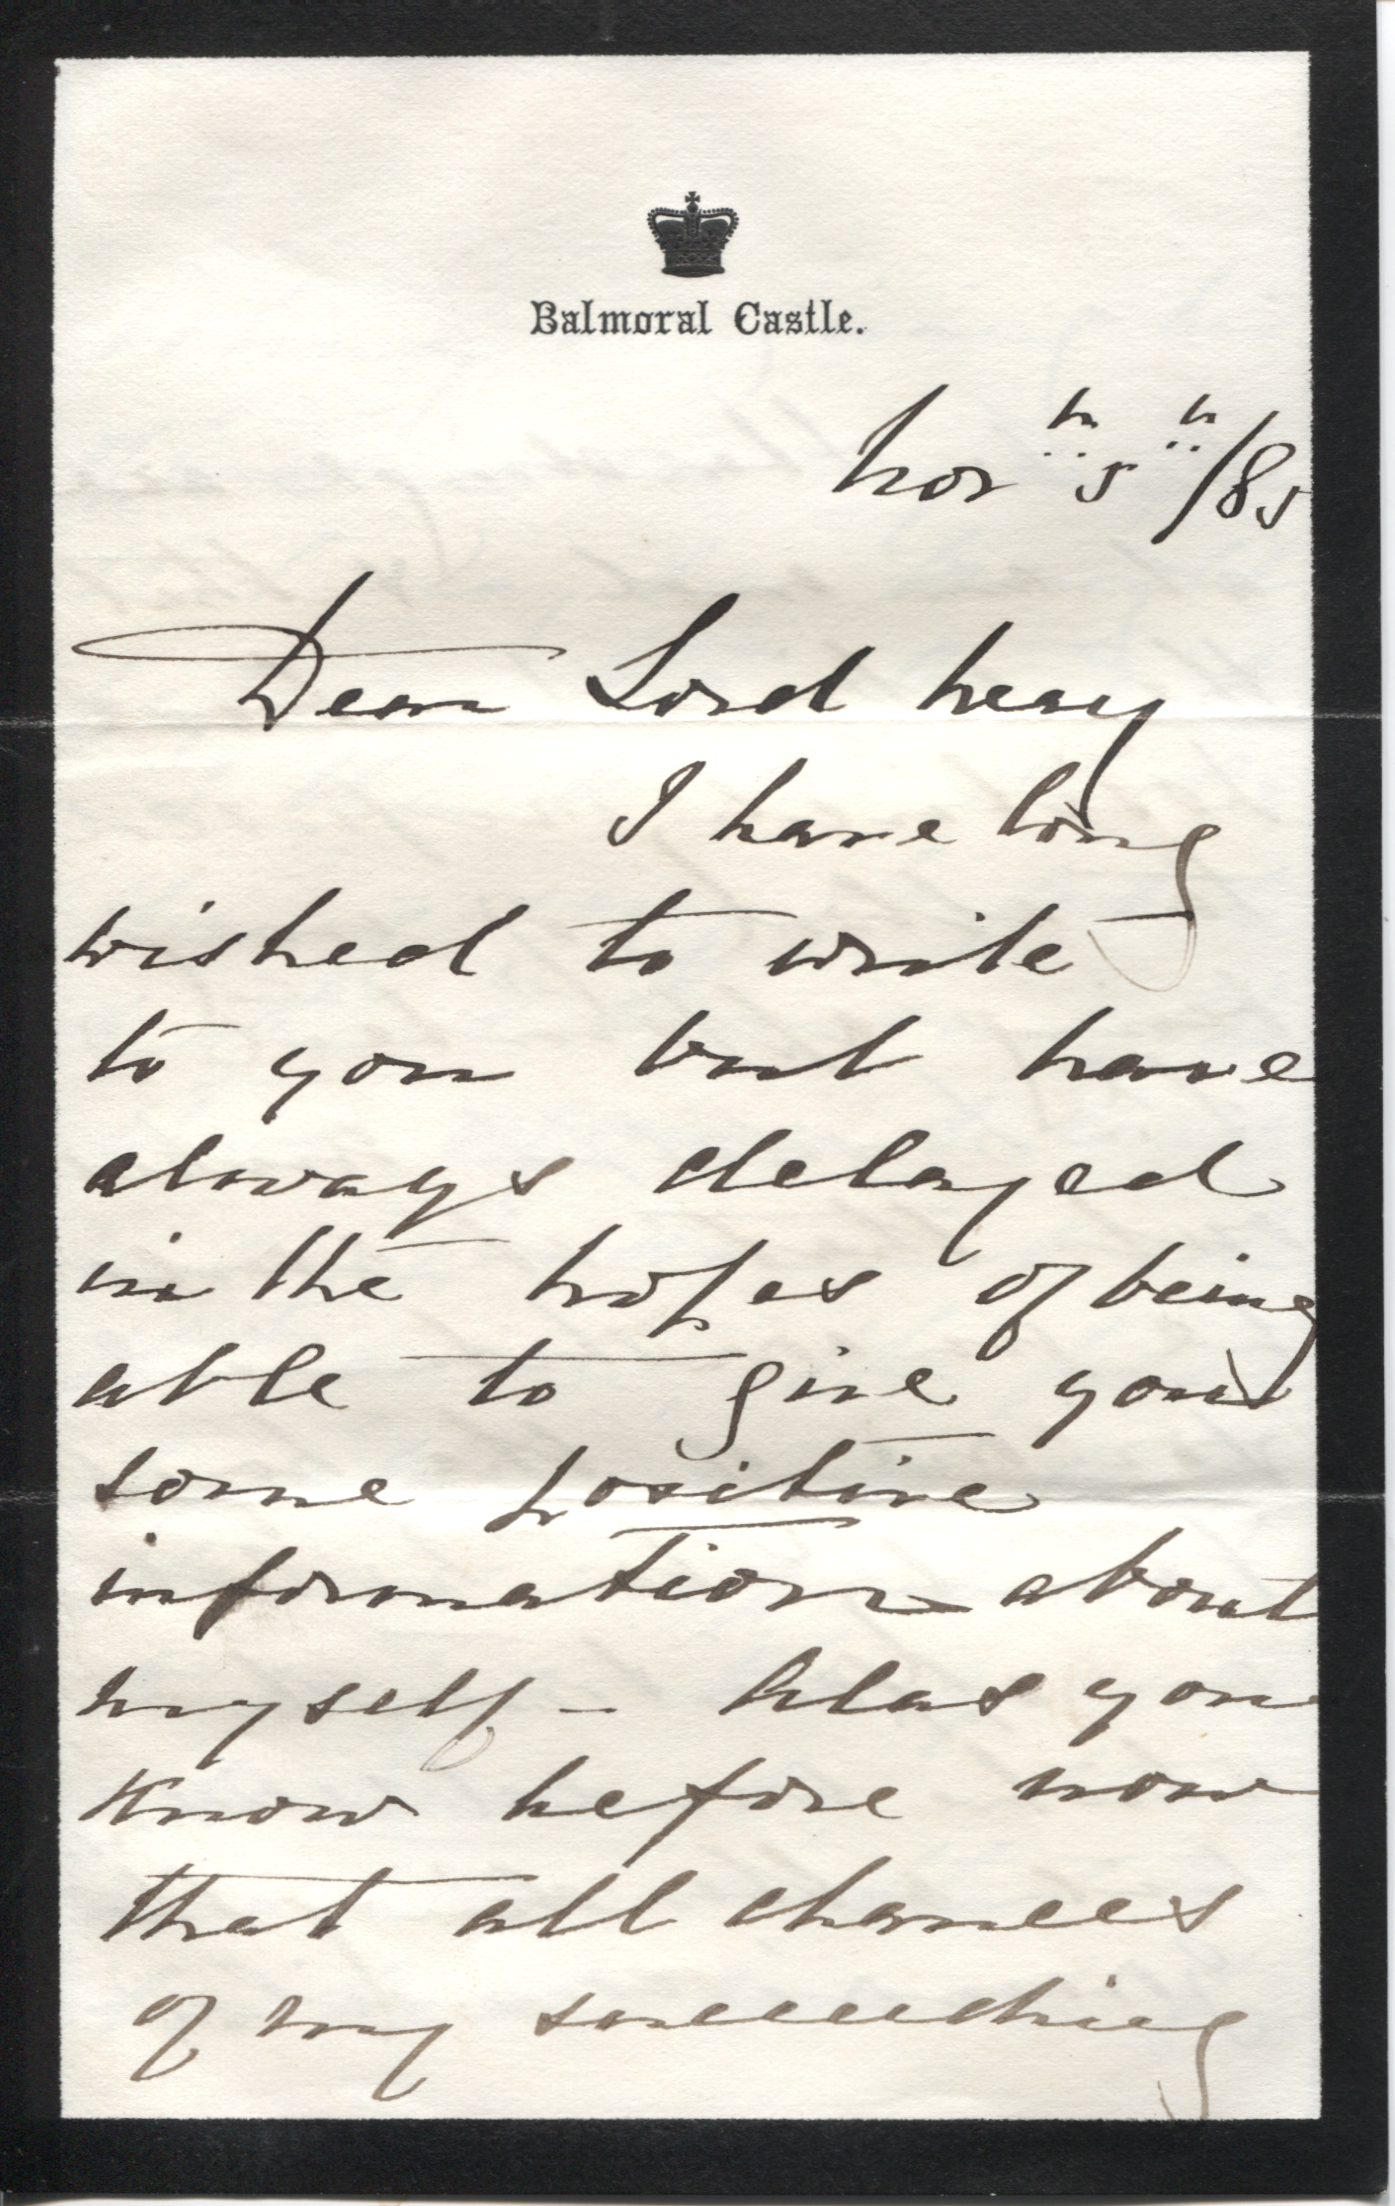 Balmoral Castle.
Nov 5th/85
Dear Lord Reay
I have long
wished to write
to you but have
always delayed
in the hopes of being
able to give you
some positive
information about
myself - Alas you
know before now
that all chances
of my succeeding